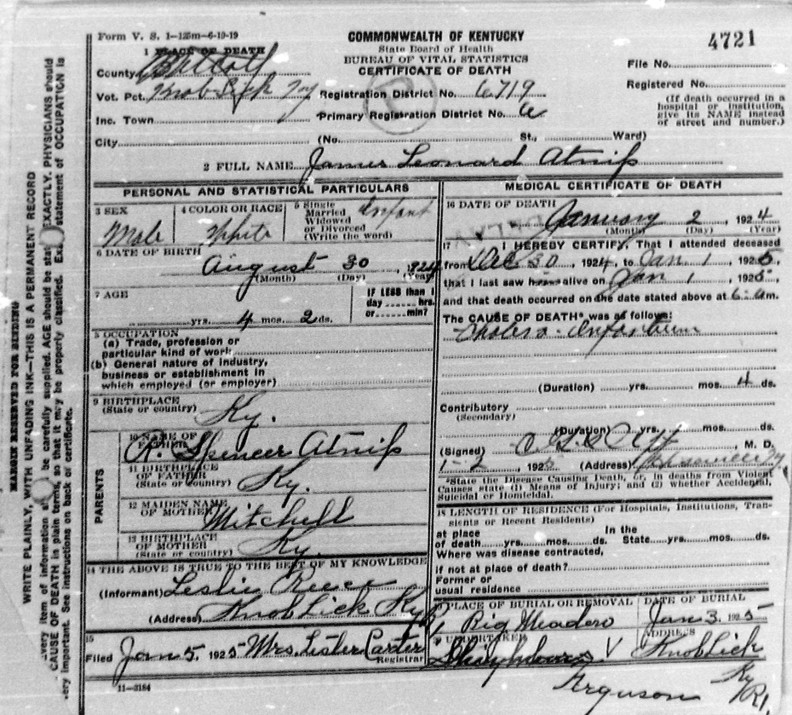 Form V. S. 1-125m-6-19-19
COMMONWEALTH OF KENTUCKY
State Board of Health
BUREAU OF VITAL STATISTICS
CERTIFICATE OF DEATH
4721
1 PLACE OF DEATH
County
Vot. Pct. Knob Lick Ky
Inc. Town
City
Registration District No. 6719
Primary Registration District No.
(No. St., Ward)
File No.
Registered No.
(If death occurred in a
hospital or institution,
give its NAME instead
of street and number.)
2 FULL NAME James Leonard Atnip
PERSONAL AND STATISTICAL PARTICULARS
3 SEX
Male
4 COLOR OR RACE
White
5 Single
Married
Widowed
or Divorced
(Write the word)
Infant
6 DATE OF BIRTH
August 30 1924
(Month) (Day) (Year)
7 AGE
yrs. 4 mos. 2 ds.
IF LESS than 1
day hrs.
or min?
OCCUPATION
(a) Trade, profession or
particular kind of work
(b) General nature of industry,
business or establishment in
which employed (or employer)
9 BIRTHPLACE
(State or country) Ky.
PARENTS
10 NAME OF
FATHER
R. Spencer Atnip
11 BIRTHPLACE
OF FATHER
(State or country) Ky.
12 MAIDEN NAME
OF MOTHER Mitchell
13 BIRTHPLACE
OF MOTHER
(State or country) Ky.
14 THE ABOVE IS TRUE TO THE BEST OF MY KNOWLEDGE
(Informant) Leslie Reece
(Address) Knob Lick Ky R1
15
Filed Jan 5. 1925 Mrs. Lester Carter
Registrar
11-3184
MEDICAL CERTIFICATE OF DEATH
16 DATE OF DEATH
January 2, 1924
(Month) (Day) (Year)
17 I HEREBY CERTIFY, That I attended deceased
from Dec 30, 1924, to Jan 1, 1925,
that I last saw alive on Jan 1, 1925
and that death occurred on the date stated above at 6: am.
The CAUSE OF DEATH* was as follows:
Cholera-Infantum
(Duration) yrs. mos. 4 ds.
Contributory
(Secondary)
(Duration) yrs. mos. ds.
(Signed) M. D.
1-2, 192 (Address)
*State the Disease Causing Death, or, in deaths from Violent
Causes state (1) Means of Injury; and (2) whether Accidental,
Suicidal or Homicidal.
18 LENGTH OF RESIDENCE (For Hospitals, Institutions, Tran-
sients or Recent Residents)
at place In the
of death yrs. mos. ds. State yrs. mos. ds.
Where was disease contracted,
if not at place of death?
Former or
usual residence
PLACE OF BURIAL OR REMOVAL
Big Meadow
DATE OF BURIAL
Jan 3. 1925
UNDERTAKER
V
Ferguson
ADDRESS
Knob Lick
Ky
R1.
MARGIN RESERVED FOR BINDING
WRITE PLAINLY, WITH UNFADING INK—THIS IS A PERMANENT RECORD
every item of information should be carefully supplied. AGE should be stated EXACTLY. PHYSICIANS should
CAUSE OF DEATH in plain terms, so that it may be properly classified. statement of OCCUPATION is
very important. See instructions on back of certificate.